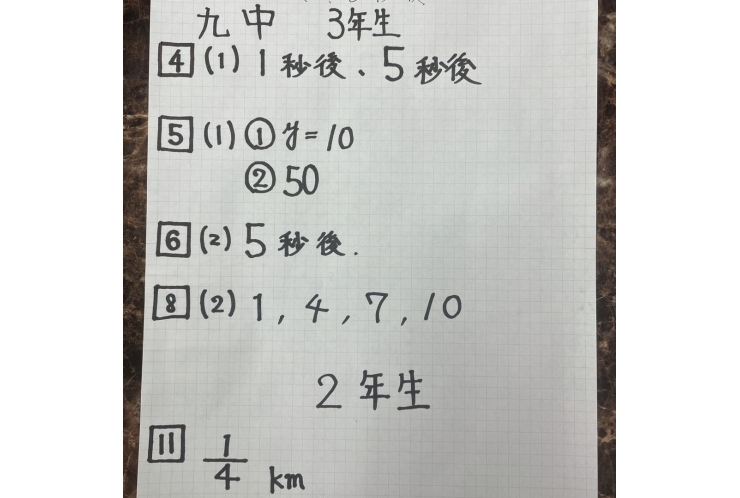 九中 3年生
4 (1) 1秒後、5秒後
5 (1) ① y=10
② 50
6 (2) 5秒後.
8 (2) 1, 4, 7, 10
2年生
11 1/4 km